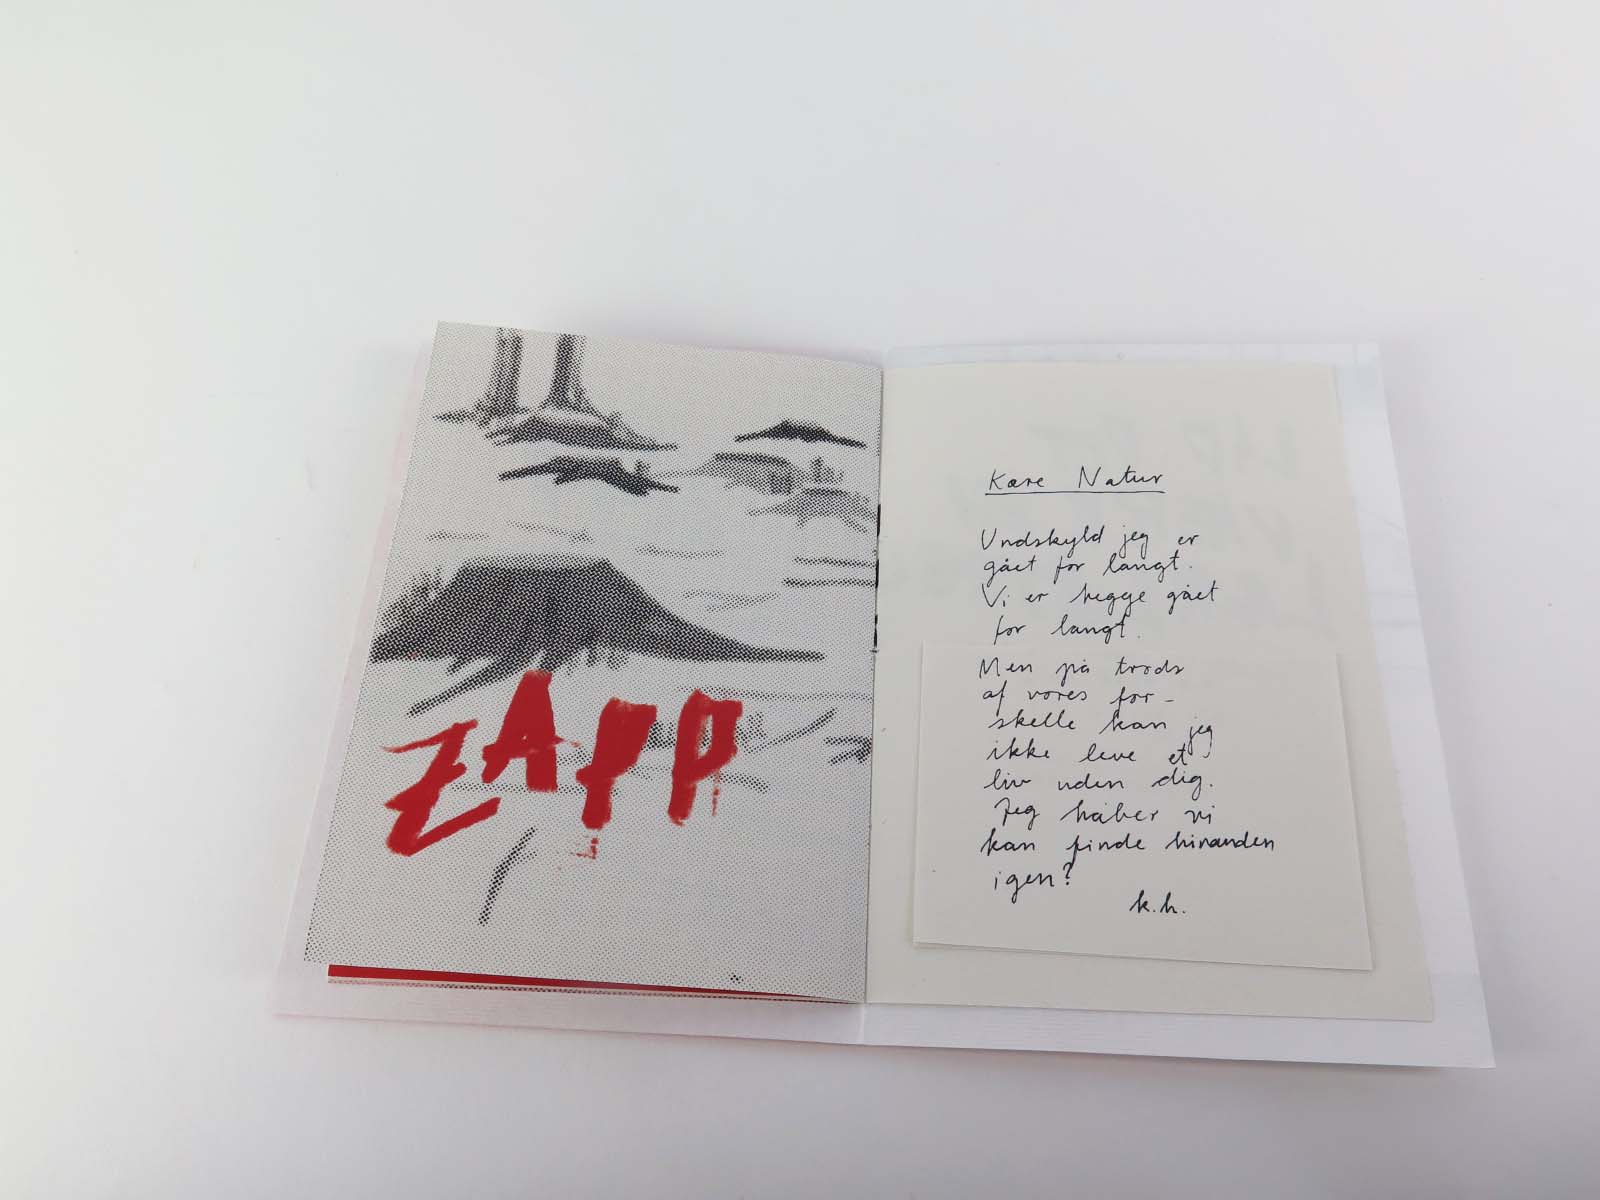 ZAPP
Kære Natur
Undskyld jeg er
gået for langt.
Vi er begge gået
for langt.
Men på trods
af vores for-
skelle kan jeg
ikke leve et
liv uden dig.
Jeg håber vi
kan finde hinanden
igen?
k.h.